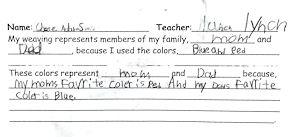 Name: Teacher: Lynch
My weaving represents members of my family, mom and
Dad, because I used the colors, Blue and Red
These colors represent mom and Dad because,
my moms Favrite coler is Red And my Dads Favrite
coler is Blue.